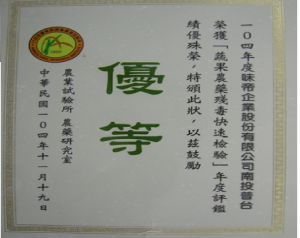 一○四年度味帝企業股份有限公司南投普台
榮獲「蔬果農藥殘毒快速檢驗」年度評鑑
績優殊榮，特頒此狀，以茲鼓勵
優等
農業試驗所 農藥研究室
中華民國一○四年十一月十九日